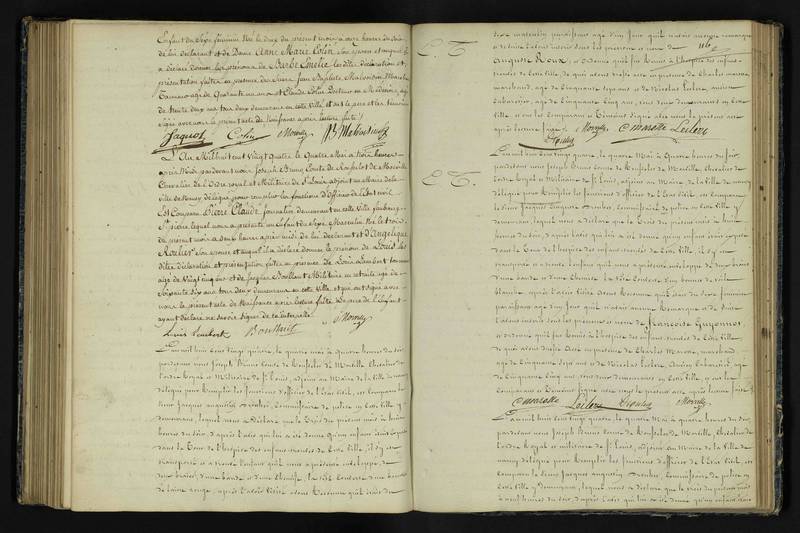 Enfant du Sexe féminin Né le deux du présent mois à onze heures du Soir
de lui déclarant et de Dame Anne Marie Colin son épouse et auquel il
a déclaré donner les prénoms de Barbe Emelie les dites déclaration et
présentation faites en présence de Sieurs Jean Baptiste
age de quarante un ans et Claude Colin Docteur en Médecine, agé
de trente deux ans tous deux demeurans en cette Ville, et ont le père et les témoins
signé avec nous le présent acte de Naissance après lecture faite
Jaquot Colin
L'An Mil huit cent Vingt quatre le Quatre Mai à trois heures
après Midi pardevant nous Joseph Bruno Comte de
Chevalier de l'Ordre royal et Militaire de St Louis adjoint au Maire de la
ville de Nancy délégué pour remplir les fonctions d'Officier de l'état civil
Est Comparu Pierre Claude, journalier, demeurant en cette Ville faubourg
St pierre lequel nous a présenté un Enfant du Sexe Masculin Né le trois
du présent mois à deux heures après midi de lui déclarant et d'Angélique
son épouse et auquel il a déclaré donner le prénom de Louis les
dites déclaration et présentation faites en présence de Louis Lambert
age de Vingt cinq ans et de Jacques Militaire en retraite agé de
Soixante dix ans tous deux demeurans en cette Ville, et qui ont signé avec
nous le présent acte de Naissance après lecture faite le père de l'Enfant
ayant déclaré ne savoir signer de ce interpellé
Louis Lambert
L'an mil huit cent vingt quatre, le quatre mai à quatre heures du soir
pardevant nous Joseph Bruno Comte de Chevalier de
l'ordre Royal et Militaire de St Louis, adjoint au Maire de la Ville de Nancy
délégué pour remplir les fonctions d'officier de l'état civil, est comparu le
sieur Jacques augustin commissaire de police en cette Ville y
demeurant, lequel nous a déclaré que le trois du présent mois à
heures du soir, d'après l'avis qui lui a été donné qu'un enfant
dans le Tour de l'hospice des enfans trouvés de cette Ville, il s'y est
transporté et a trouvé l'enfant qu'il nous a présenté enveloppé de
deux d'une bande et d'une chemise, la tête couverte d'un bonnet
de laine rouge, après l'avoir visité avons reconnu qu'il était du
sexe masculin paraissant agé d'un jour qu'il n'avait aucune remarque
116
E.T.
auguste Roux et ordonné qu'il fut remis à l'hospice des enfans
trouvés de cette ville, de quoi avons dressé acte en présence de Charles marotte
marchand, agé de Cinquante sept ans et de Nicolas Leclerc, ancien
agé de Cinquante Cinq ans, tous deux demeurans en cette
Ville, et ont les comparant et Témoins signé avec nous le présent acte
après lecture faite
C marotte Leclerc
E.T.
L'an mil huit cent vingt quatre, le quatre Mai à Quatre heures du soir
pardevant nous Joseph Bruno Comte de Chevalier de
l'ordre Royal et militaire de St Louis, adjoint au Maire de la Ville de nancy
délégué pour Remplir les fonctions d'officier de l'état Civil, est comparu
le sieur Jacques Augustin Commissaire de police en cette Ville y
demeurant, lequel nous a déclaré que le Trois du présent mois à huit
heures du soir, d'après l'avis qui lui a été donné qu'un enfant était exposé
dans le Tour de l'hospice des enfans trouvés de cette Ville, il s'y est
transporté et a trouvé l'enfant qu'il nous a présenté enveloppé de deux
d'une bande et d'une Chemise la tête couverte d'un bonnet de toile
blanche, après l'avoir visité avons Reconnu qu'il était du sexe féminin
paraissant agé d'un jour qu'il n'avait aucune Remarque et de suite
l'avons inscrit sous les prénoms et nom de françoise Guyonnot,
et ordonné qu'il fut Remis à l'hospice des enfans trouvés de cette Ville
de quoi avons dressé acte en présence de Charles Marotte, marchand,
agé de Cinquante sept ans et de Nicolas Leclerc, ancien
agé de Cinquante Cinq ans, tous deux demeurans en cette Ville, et ont les
comparant et Témoins signé avec nous le présent acte, après lecture faite
C marotte Leclerc
L'an mil huit cent vingt quatre, le quatre Mai à quatre heures du soir
pardevant nous Joseph Bruno Comte de Chevalier de
l'ordre Royal et militaire de St Louis, adjoint au Maire de la Ville de
nancy délégué pour Remplir les fonctions d'officier de l'état Civil, est
comparu le sieur Jacques Augustin Commissaire de police en
cette Ville y demeurant, lequel nous a déclaré que le trois du présent mois
à neuf heures du soir, d'après l'avis qui lui a été donné qu'un enfant était